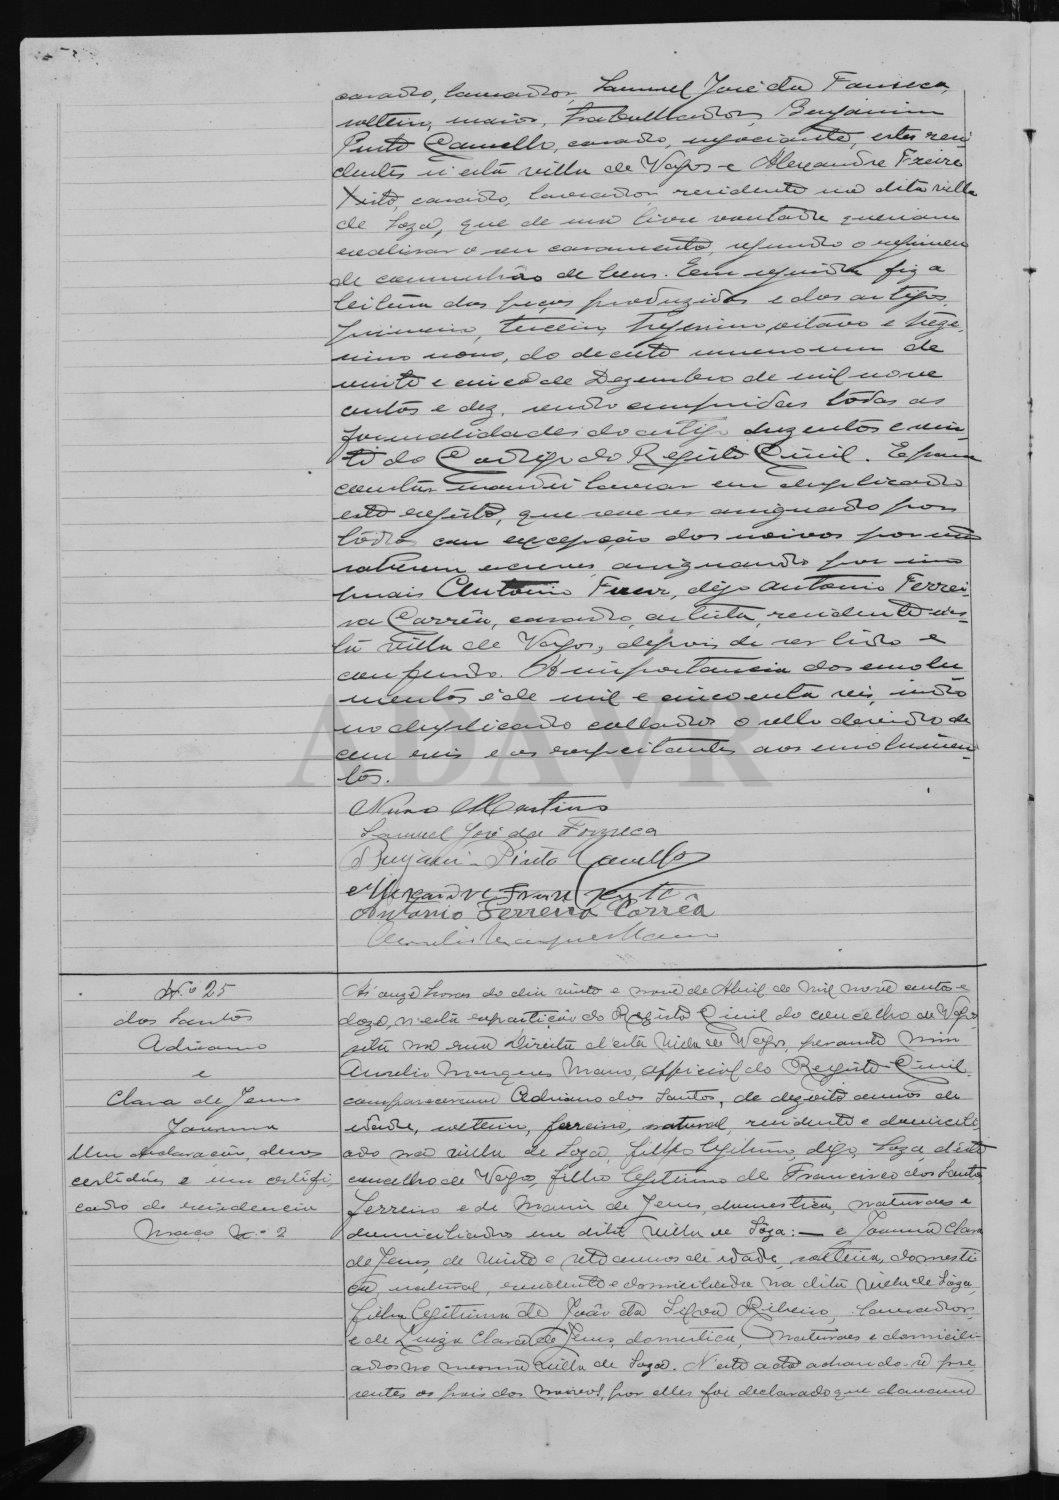 casado, lavrador, Samuel José da Fonseca,
solteiro, maior, trabalhador, Benjamim
Pinto Camello, casado, negociante, estes resi-
dentes n'esta villa de Vagos e Alexandre Freire
Xito, casado, lavrador, residente na dita villa
de Soza, que de sua livre vontade queriam
realisar o seu casamento, segundo o regimen
de communhão de bens. Em seguida fiz a
leitura das peças produzidas e dos artigos
primeiro, terceiro, trigesimo oitavo e trige-
simo nono, do decreto numero um de
vinte e cinco de Dezembro de mil nove
centos e dez, sendo cumpridas todas as
formalidades do artigo duzentos e vin-
te do Codigo do Registo Civil. E para
constar mandei lavrar em duplicado
este registo, que vae ser assignado por
todos com excepção dos noivos por não
saberem escrever, assignando por seus
paes Antonio Freire, digo Antonio Ferrei-
ra Corrêa, casado, artista, residente nes-
ta villa de Vagos, depois de ser lido e
conferido. A importancia dos emolu
mentos é de mil e cincoenta reis, indo
no duplicado collados o sello devido de
cem reis e os respeitantes aos emolumen-
tos.
Nuno Martins
Samuel José da Fonseca
Benjamim Pinto Camello
Alexandre Freire
Antonio Ferreira Corrêa
Aurelio Marques Mano
N.º 25
dos Santos
Adriano
e
Clara de Jesus
Joanna
Uma declaração, duas
certidões e um certifi-
cado de residencia
Maço N.º 2
Ás onze horas do dia vinte e nove de Abril de mil nove centos e
doze, n'esta repartição do Registo Civil do concelho de Vagos,
sita na rua Direita d'esta villa de Vagos, perante mim
Aurelio Marques Mano, official do Registo Civil,
compareceram Adriano dos Santos, de dezoito annos de
idade, solteiro, ferreiro, natural, residente e domicili
ado na villa de Soza, filho legitimo, digo, Soza, d'este
concelho de Vagos, filho legitimo de Francisco dos Santos
Ferreiro e de Maria de Jesus, domestica, naturaes e
domiciliados em dita villa de Soza: — e Joanna Clara
de Jesus, de vinte e sete annos de idade, solteira, domesti
ca, natural, residente e domiciliada na dita villa de Soza,
filha legitima de João da Silva Ribeiro, lavrador,
e de Luiza Clara de Jesus, domestica, naturaes e domicili-
ados na mesma villa de Soza. N'este acto achando-se pre-
sentes os paes dos noivos, por elles foi declarado que davam